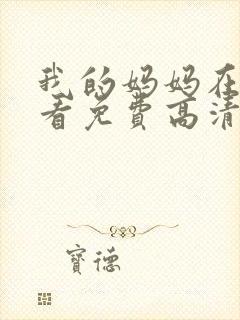 我的妈妈在
看免费高清
寶德